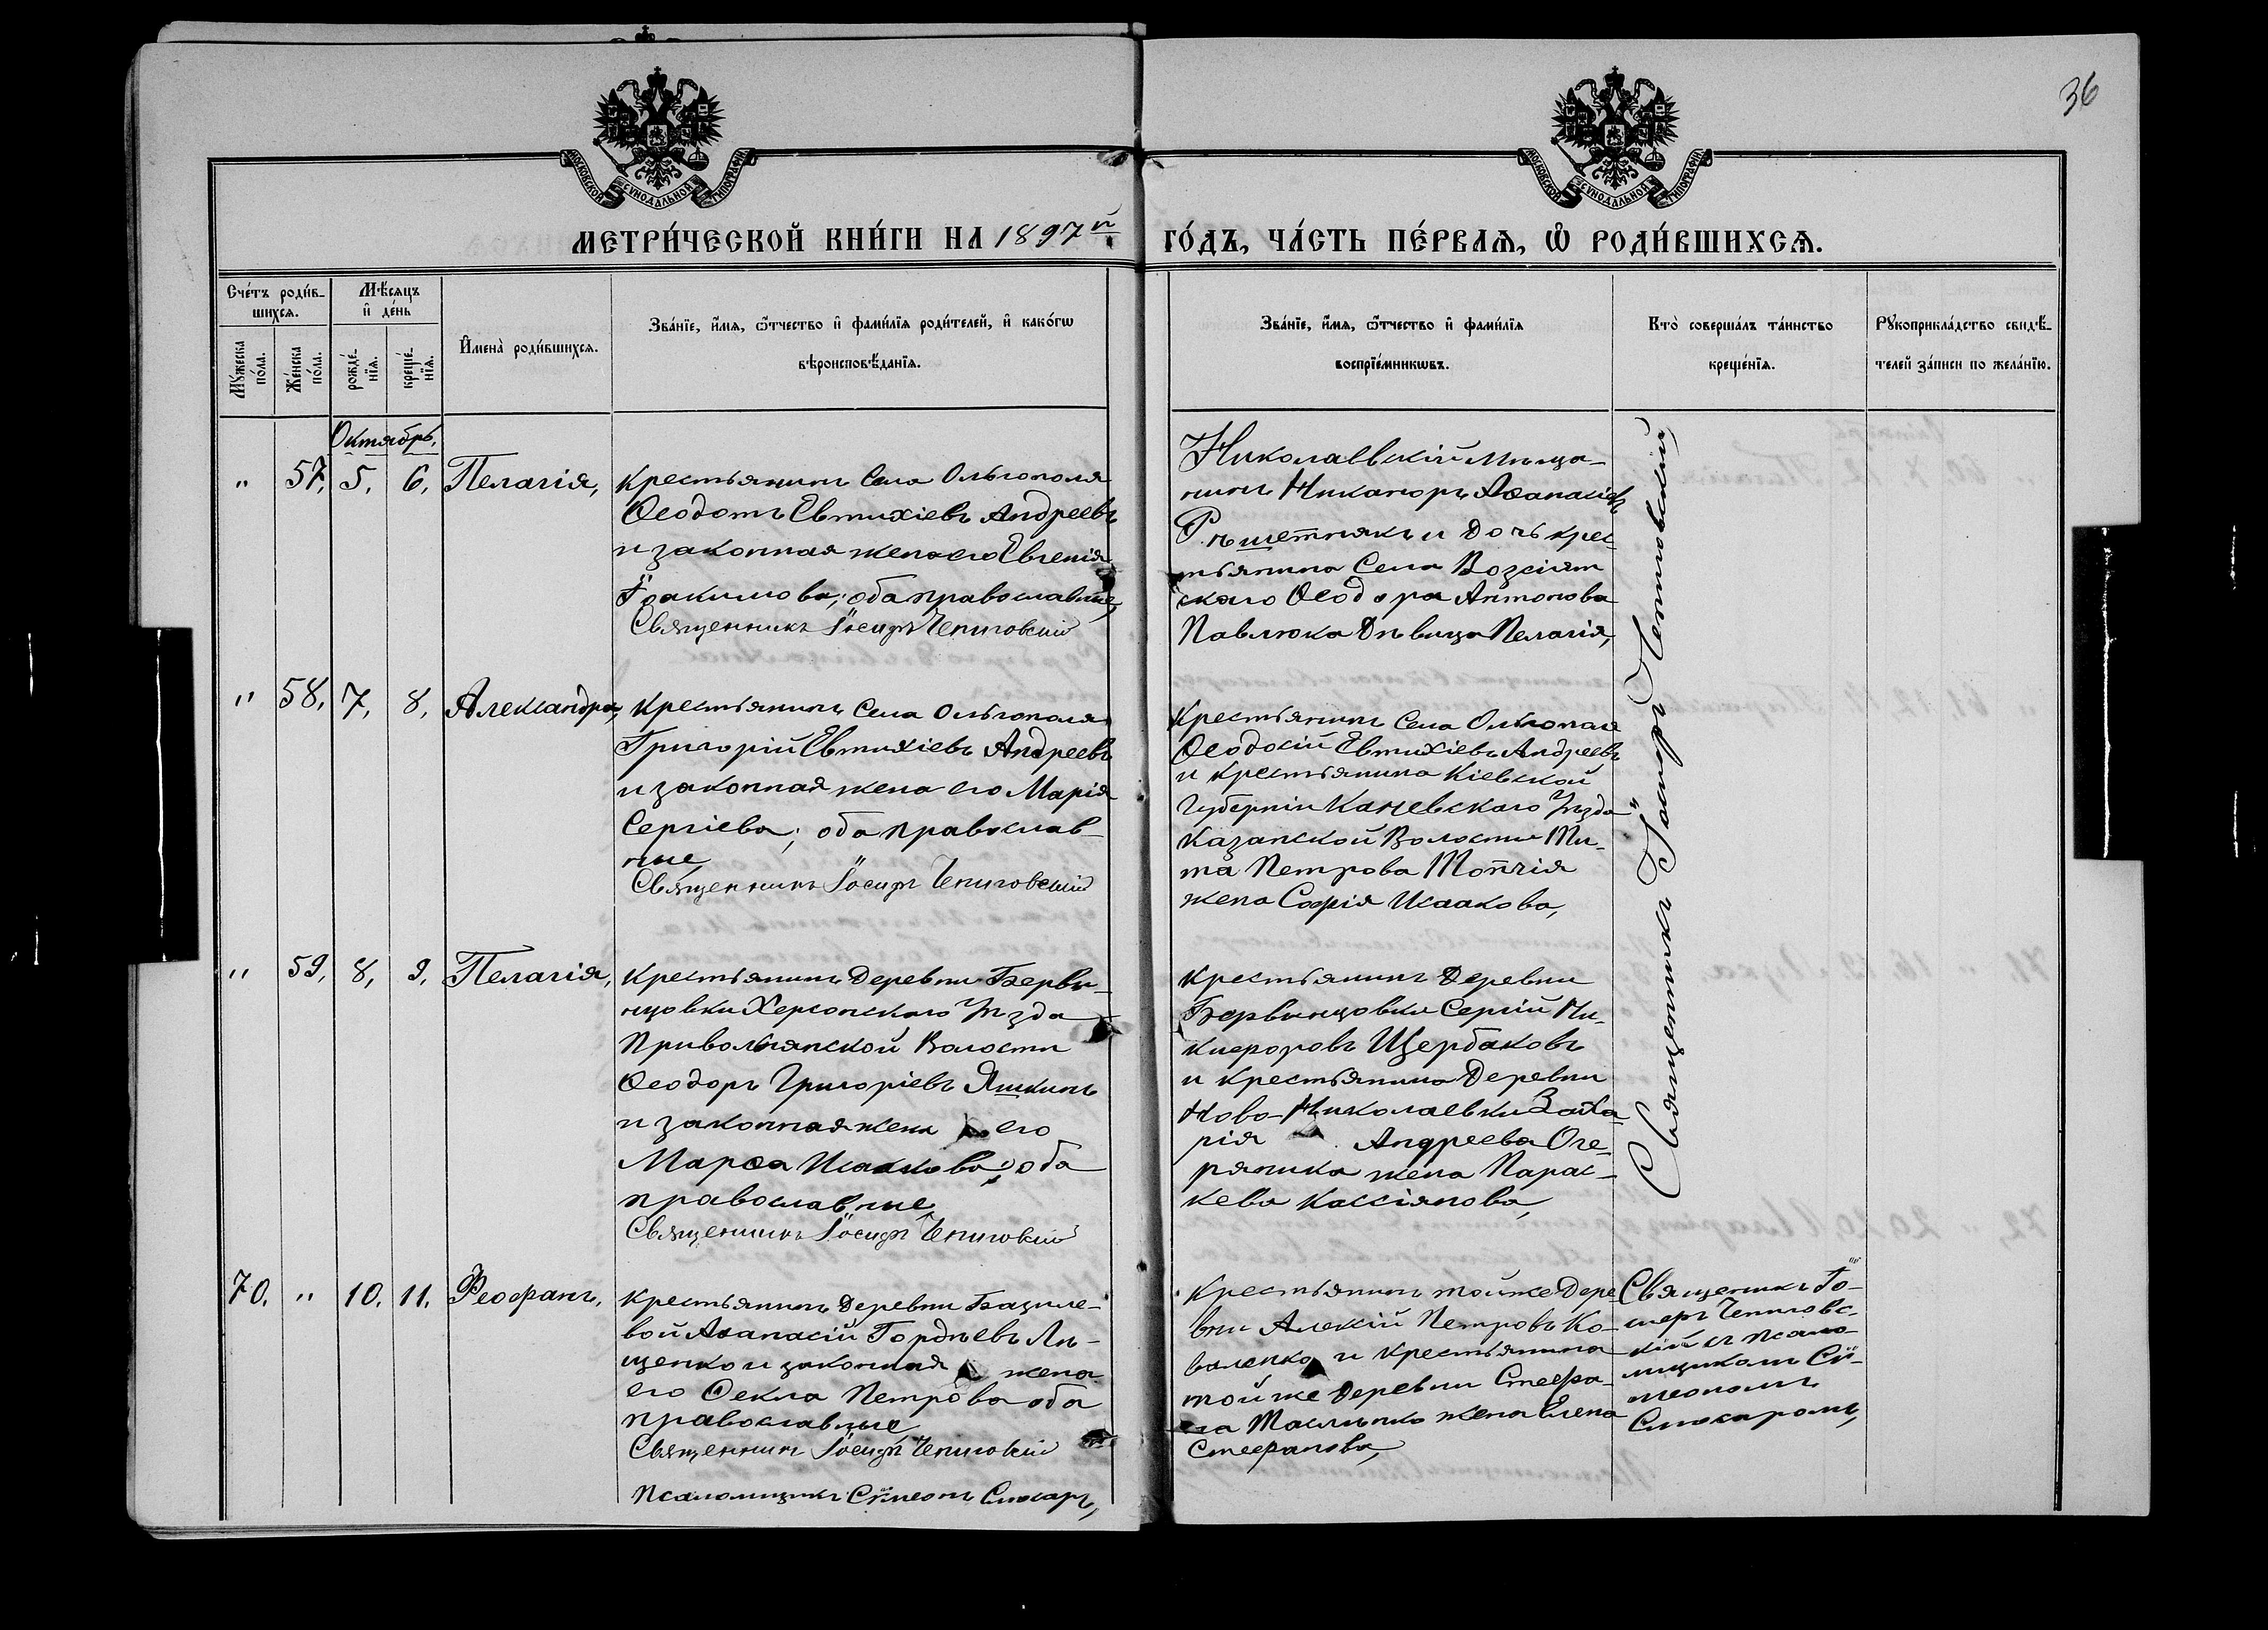 36
МОСКОВСКОЙ СУНОДАЛЬНОЙ ТИПОГРАФІИ
МОСКОВСКОЙ СУНОДАЛЬНОЙ ТИПОГРАФІИ
МЕТРИ́ЧЕСКОЙ КНИ́ГИ НА 1897й ГО́ДЪ, ЧА́СТЬ ПЕ́РВАѦ, Ѡ҆ РОДИ́ВШИХСѦ.
Сче́тъ роди́в-
шихсѧ.
Мꙋ́жеска
по́ла.
Же́нска
по́ла.
Мѣ́сѧцъ
и҆ де́нь
рожде́-
нїѧ.
креще́-
нїѧ.
И҆мена̀ роди́вшихсѧ.
Зва́нїе, и҆́мѧ, ѻ҆́тчество и҆ фами́лїѧ роди́телей, и҆ како́гѡ
вѣроисповѣ́данїѧ.
Зва́нїе, и҆́мѧ, ѻ҆́тчество и҆ фами́лїѧ
воспрїе́мникѡвъ.
Кто̀ соверша́лъ та́инство
креще́нїѧ.
Рꙋкоприкла́дство свидѣ́-
телей за́писи по жела́нїю.
Октябрь.
" 57, 5, 6, Пелагія,
Крестьянинъ Села Ольгополя
Ѳеодотъ Евтихіевъ Андреевъ
и законная жена его Евгенія
Іоакимова; оба православные,
Священникъ Іосифъ Чепиговскій
Николаевскій мѣща-
нинъ Никаноръ Аѳанасіевъ
Рѣшетнякъ и дочь крес-
тьянина Села Возсіят
скаго Ѳеодора Антонова
Павлюка Дѣвица Пелагія,
Священникъ Іосифъ Чепиговскій
" 58, 7, 8, Александра,
Крестьянинъ Села Ольгополя
Григорій Евтихіевъ Андреевъ
и законная жена его Марія
Сергіева; оба православ-
ные,
Священникъ Іосифъ Чепиговскій
Крестьянинъ Села Ольгополя
Ѳеодосій Евтихіевъ Андреевъ
и крестьянина Кіевской
Губерніи Каневскаго Уѣзда
Казанской Волости Ти-
та Петрова Топчія
жена Софія Исаакова,
" 59, 8, 9, Пелагія,
Крестьянинъ Деревни Бервин-
цовки Херсонскаго Уѣзда
Привольнянской Волости
Ѳеодоръ Григоріевъ Яшкинъ
и законная жена его
Марѳа Исаакова; оба
православные
Священникъ Іосифъ Чепиговскій
Крестьянинъ Деревни
Бервинцовки Сергій Ни-
кифоровъ Щербаковъ
и крестьянина Деревни
Ново-Николаевки Заха
рія Андреева Оче-
ряника жена Парас-
кева Кассіянова,
70. " 10. 11. Феофанъ,
Крестьянинъ Деревни Базиле-
вой Аѳанасій Гордѣевъ Ли-
щенко и законная жена
его Ѳекла Петрова оба
православные
Священникъ Іосифъ Чепиговскій
Псаломщикъ Сѵмеонъ Слюсарь,
Крестьянинъ тойже Дере
вни Алексій Петровъ Ко-
валенко и крестьянина
той же Деревни Стефа-
на жена Елена
Стефанова,
Священникъ Іо-
сифъ Чепиговс-
кій съ псало-
мщикомъ Сѵ-
меономъ
Слюсаромъ,